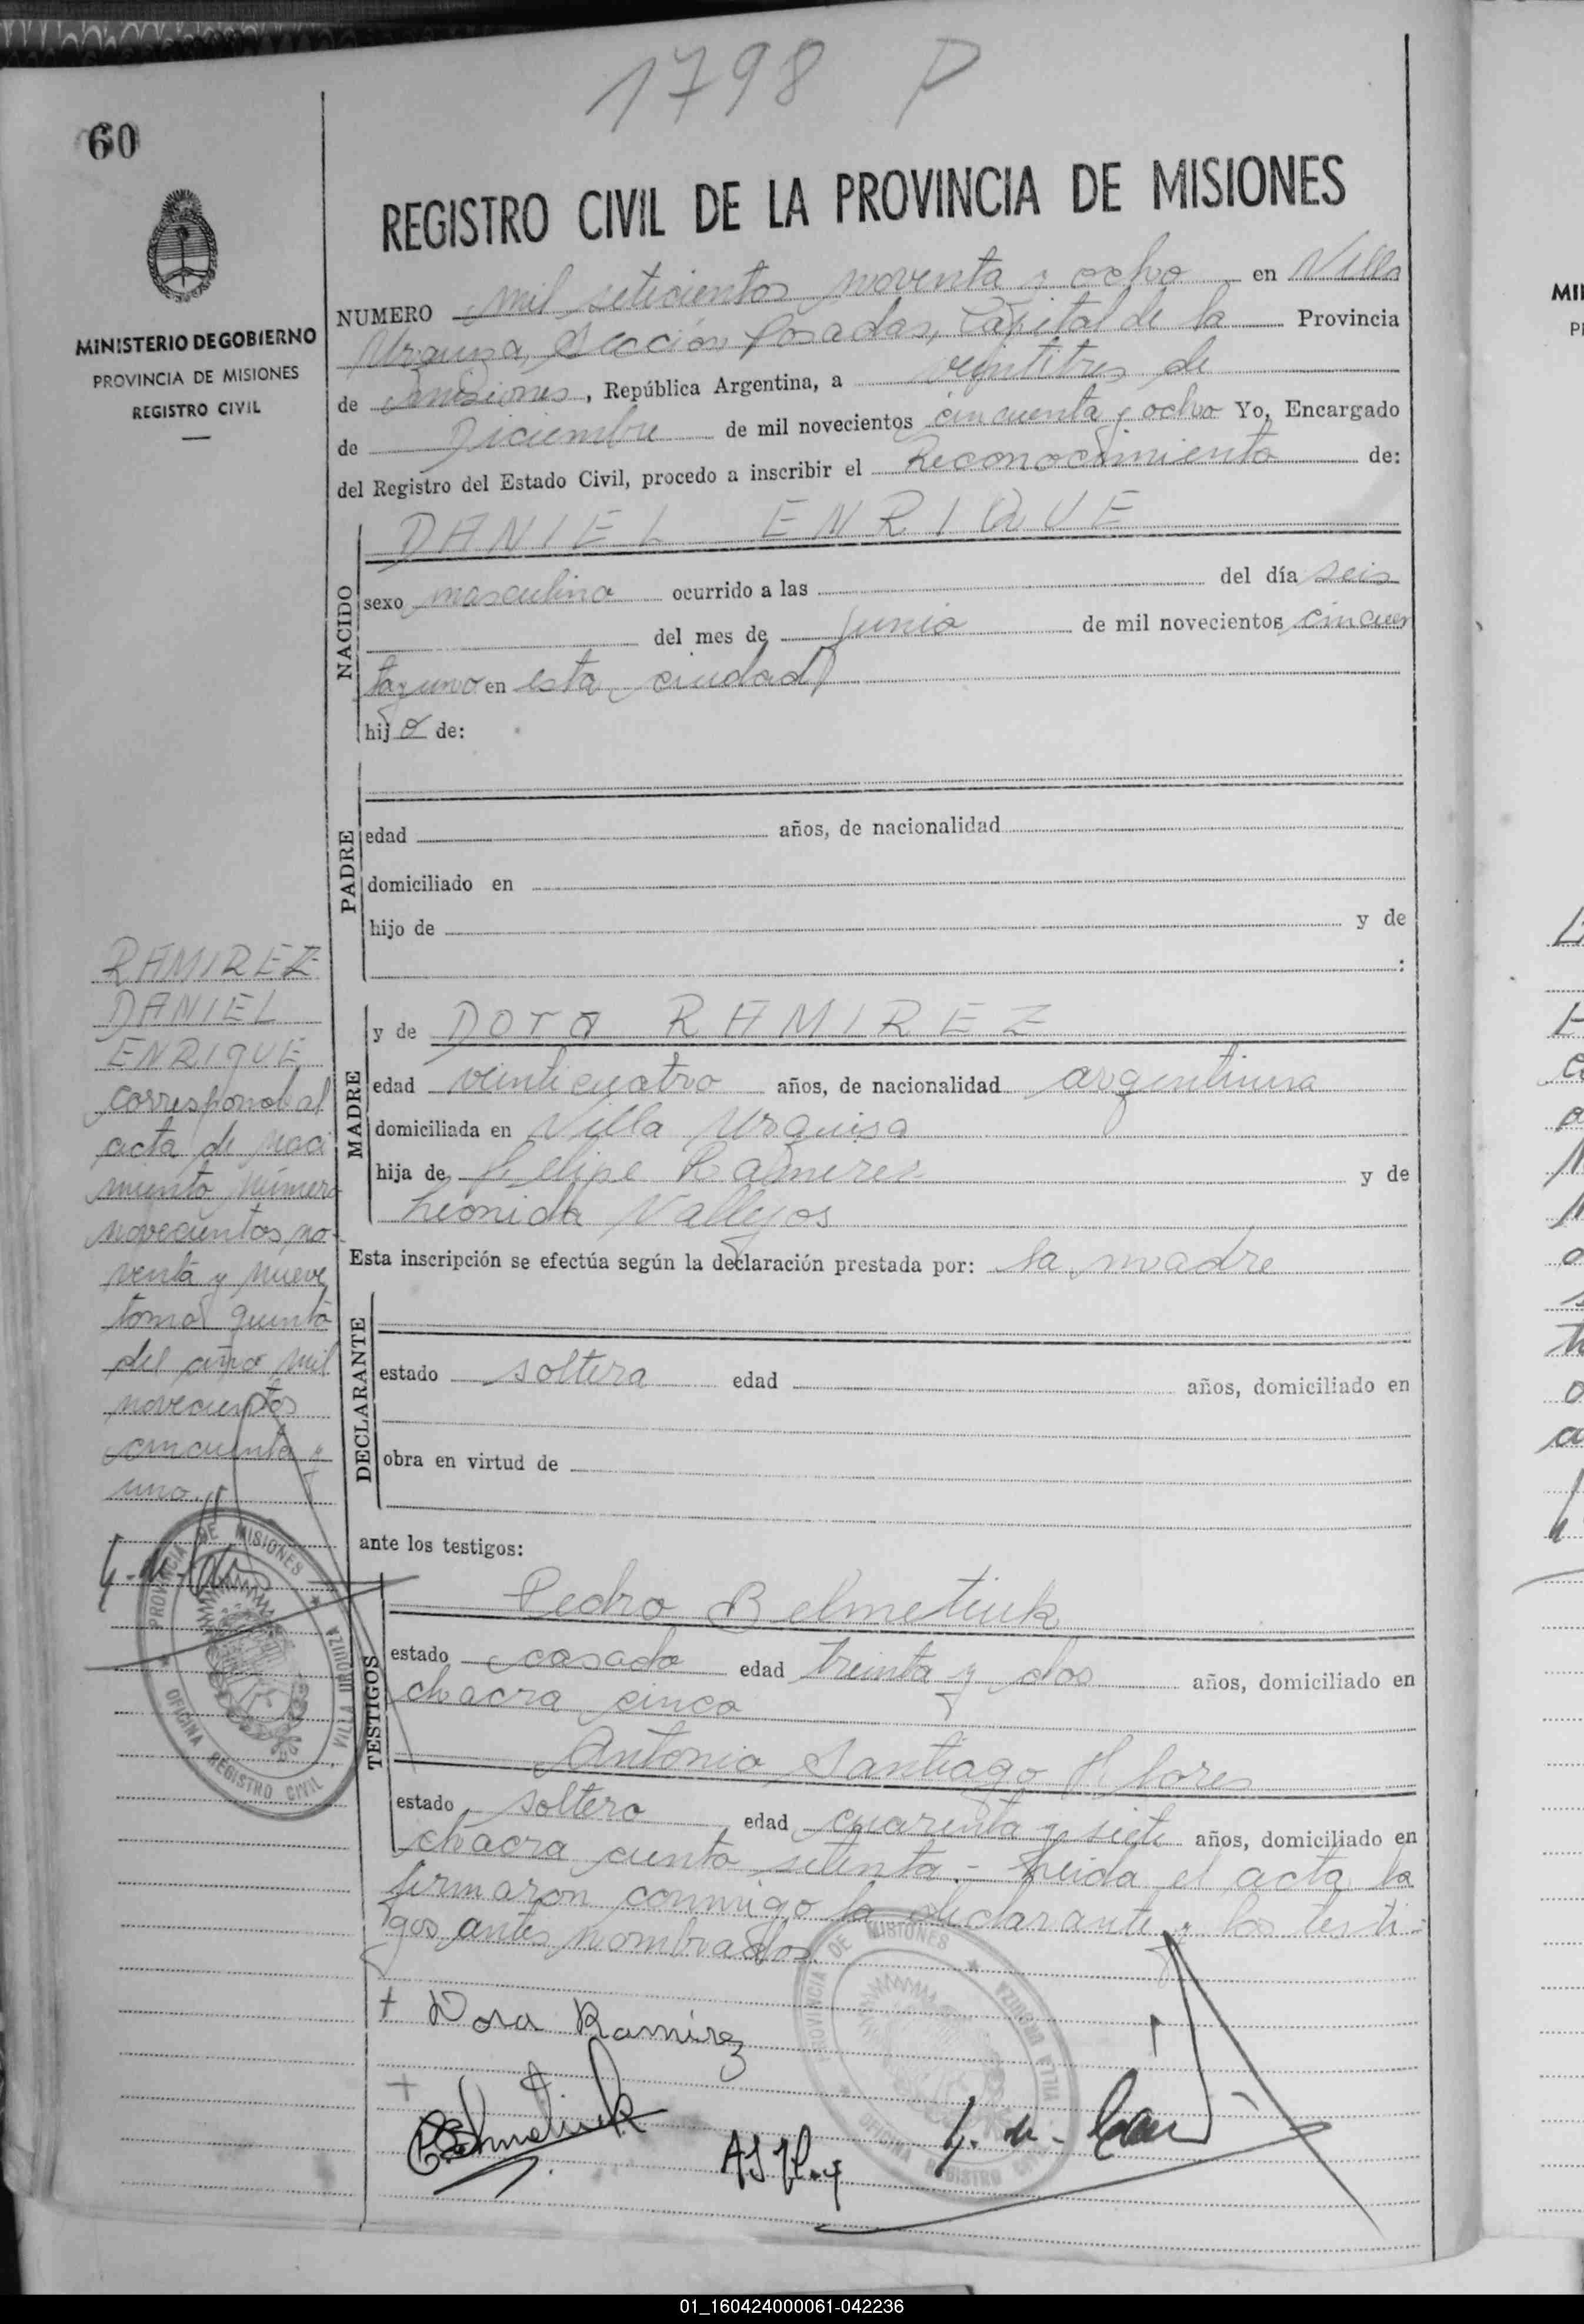 1798 P
60
MINISTERIO DE GOBIERNO
PROVINCIA DE MISIONES
REGISTRO CIVIL
REGISTRO CIVIL DE LA PROVINCIA DE MISIONES
NUMERO mil seticientos noventa y ocho en Villa
Urquisa, Sección Posadas, Capital de la Provincia
de Misiones, República Argentina, a veintitres de
de Diciembre de mil novecientos cincuenta y ocho Yo, Encargado
del Registro del Estado Civil, procedo a inscribir el Reconocimiento de:
NACIDO
DANIEL ENRIQUE
sexo masculino ocurrido a las del día seis
del mes de Junio de mil novecientos cincuen
ta y uno en esta ciudad
hijo de:
PADRE
edad años, de nacionalidad
domiciliado en
hijo de y de
:
RAMIREZ
DANIEL
ENRIQUE
correspond al
acta de naci
miento número
novecientos no-
venta y nueve
tomo quinto
del año mil
novecientos
cincuenta y
uno.
MADRE
y de Dora RAMIREZ
edad veinticuatro años, de nacionalidad argentina
domiciliada en Villa Urquisa
hija de Felipe Ramirez y de
Leonida Vallejos
Esta inscripción se efectúa según la declaración prestada por: la madre
DECLARANTE
estado soltera edad años, domiciliado en
obra en virtud de
ante los testigos:
TESTIGOS
Pedro Belmetiuk
estado casado edad treinta y dos años, domiciliado en
chacra cinco
Antonio Santiago Flores
estado soltero edad cuarenta y siete años, domiciliado en
chacra ciento setenta.- Leida el acta, la
firmaron conmigo la declarante y los testi-
gos antes nombrados.
PROVINCIA DE MISIONES
VILLA URQUIZA
OFICINA REGISTRO CIVIL
+ Dora Ramirez
+
PROVINCIA DE MISIONES
VILLA URQUIZA
OFICINA REGISTRO CIVIL
MI
P
01_160424000061-042236